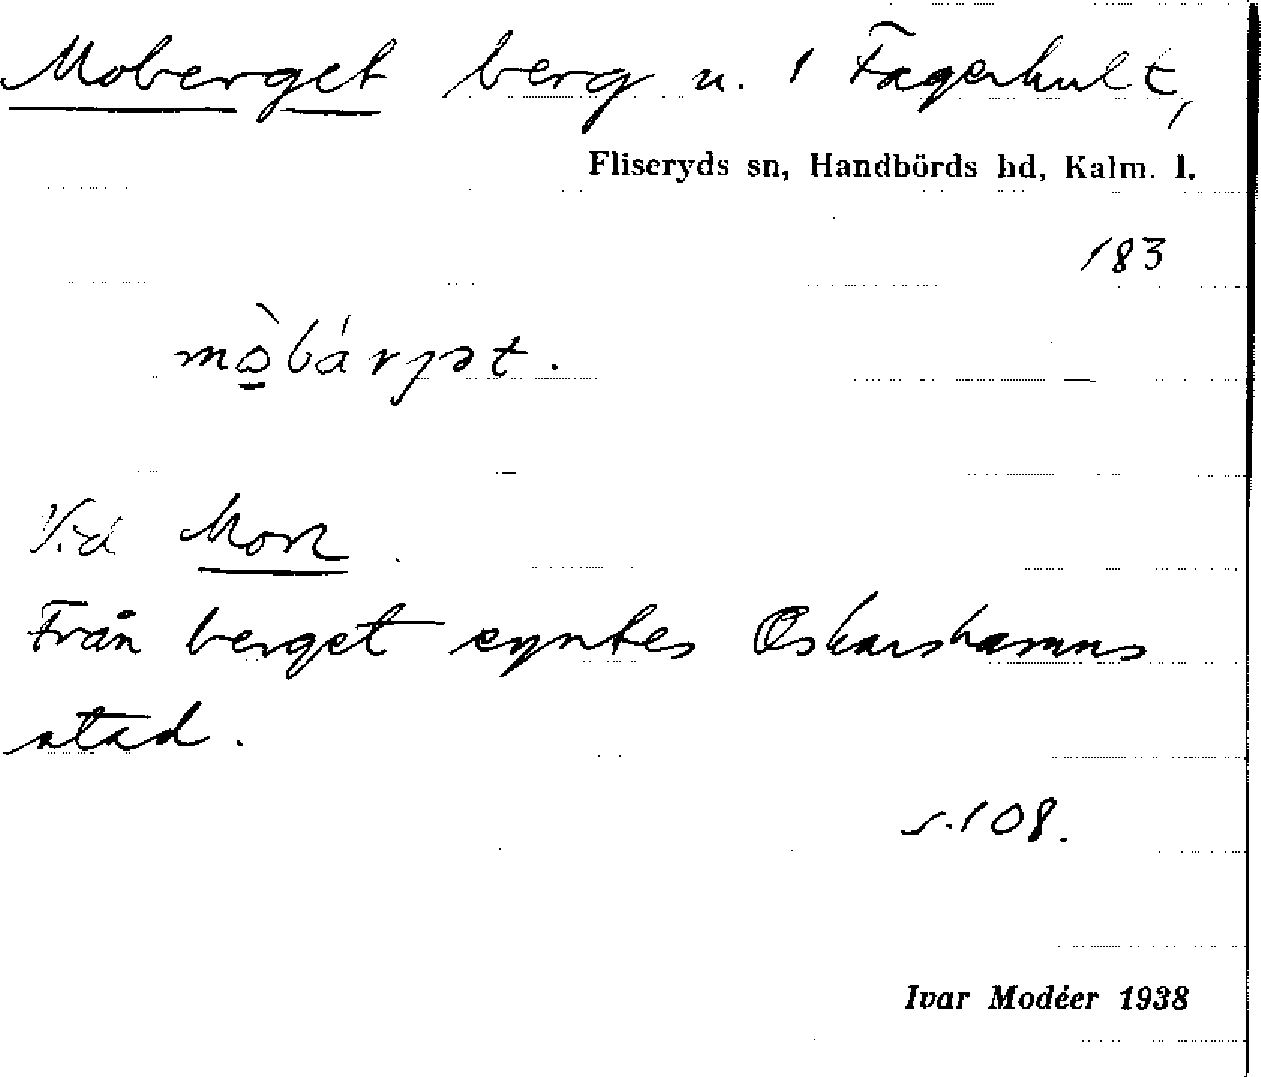 Moberget berg u. 1 Fagerhult,
Fliseryds sn, Handbörds hd, Kalm. l.
183
mò̱bárɟət.
Vid Mon.
Från berget syntes Oskarshamns
stad.
s. 108.
Ivar Modéer 1938